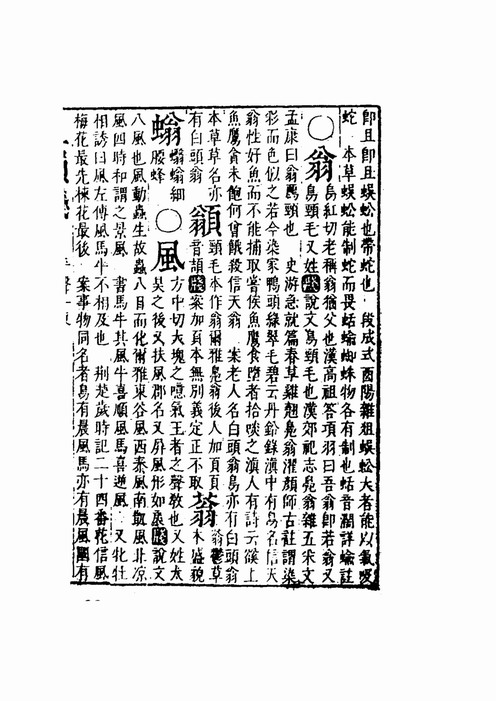 卽且卽且蜈蚣也帶蛇也 段成式酉陽雜俎蜈蚣大者能以氣吸
蛇 本草蜈蚣能制蛇而畏蛞蝓蜘蛛物各有制也蛞音濶詳蝓註
〇翁烏紅切老稱翁猶父也漢高祖答項羽曰吾翁卽若翁又
鳥頸毛又姓箋說文鳥頸毛也漢郊祀志鳧翁雜五采文
孟康曰翁鴈頸也 史游急就篇春草雞翹鳧翁濯顏師古註謂染
彩而色似之若今染家鴨頭綠翠毛碧云丹鉛錄滇中有鳥名信天
翁性好魚而不能捕取嘗候魚鷹食墮者拾啖之滇人有詩云 上
魚鷹貪未飽何曾餓殺信天翁 案老人名白頭翁鳥亦有白頭翁
本草草名亦有白頭翁
𩔚頸毛本作翁爾雅鳧翁後人加頁頁音頡箋案加頁本無別義定正不取
蓊蓊鬱草木盛貌
螉蠮螉細腰蜂
〇風方中切大塊之噫氣王者之聲敎也又姓太
吳之後又扶風郡名又屛風形如扆箋說文
八風也風動蟲生故蟲八日而化爾雅東谷風西泰風南凱風北凉
風四時和謂之景風 書馬牛其風牛喜順風馬喜逆風 又牝牡
相誘曰風左傳風馬牛不相及也 荆楚歲時記二十四番花信風
梅花最先楝花最後 案事物同名者鳥有晨風馬亦有晨風圍有